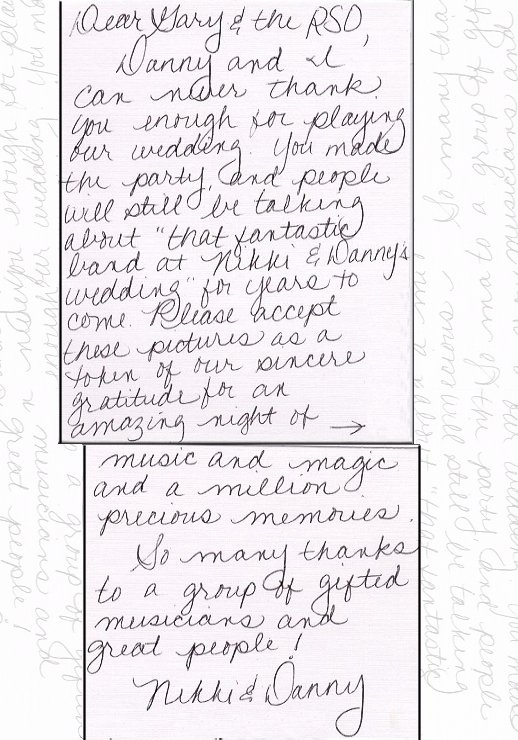 Dear Gary & the RSO,
Danny and I
can never thank
you enough for playing
our wedding. You made
the party, and people
will still be talking
about "that fantastic
band at Nikki & Danny's
wedding" for years to
come. Please accept
these pictures as a
token of our sincere
gratitude for an
amazing night of →
music and magic
and a million
precious memories.
So many thanks
to a group of gifted
musicians and
great people!
Nikki & Danny